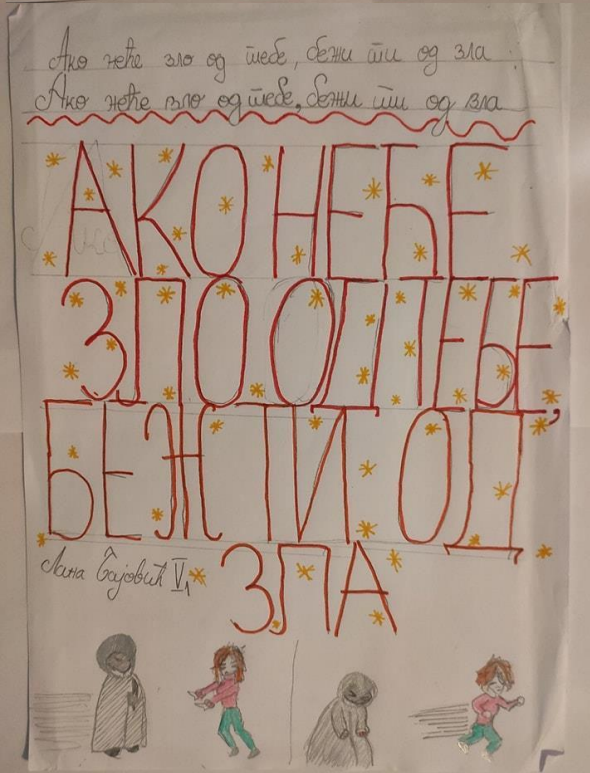 Ако неће зло од тебе, бежи ти од зла
Ако неће зло од тебе, бежи ти од зла
АКО НЕЋЕ
ЗЛО ОД ТЕБЕ,
БЕЖТИ ОД
ЗЛА
Лана Бајовић V1